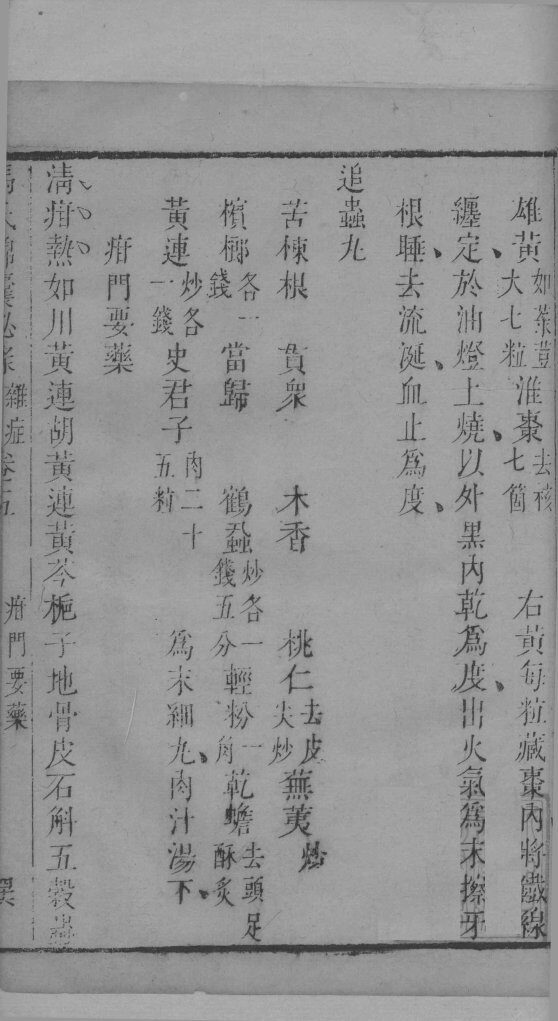 雄黃如菉荳大七粒淮棗去核七箇 右黃每粒藏棗內將鐵線
纏定於油燈上燒以外黑內乾為度出火氣為末擦牙
根睡去流涎血止為度
追蟲丸
苦楝根 貫衆 木香 桃仁去皮尖炒蕪荑炒
檳榔各一錢當歸 鶴蝨炒各一錢五分輕粉一角乾蟾去頭足酥炙
黃連炒各一錢史君子肉二十五粒 為末麵丸肉汁湯下
疳門要藥
清疳熱如川黃連胡黃連黃芩梔子地骨皮石斛五穀蟲
馮氏錦囊秘彔 雜症卷五 疳門要藥